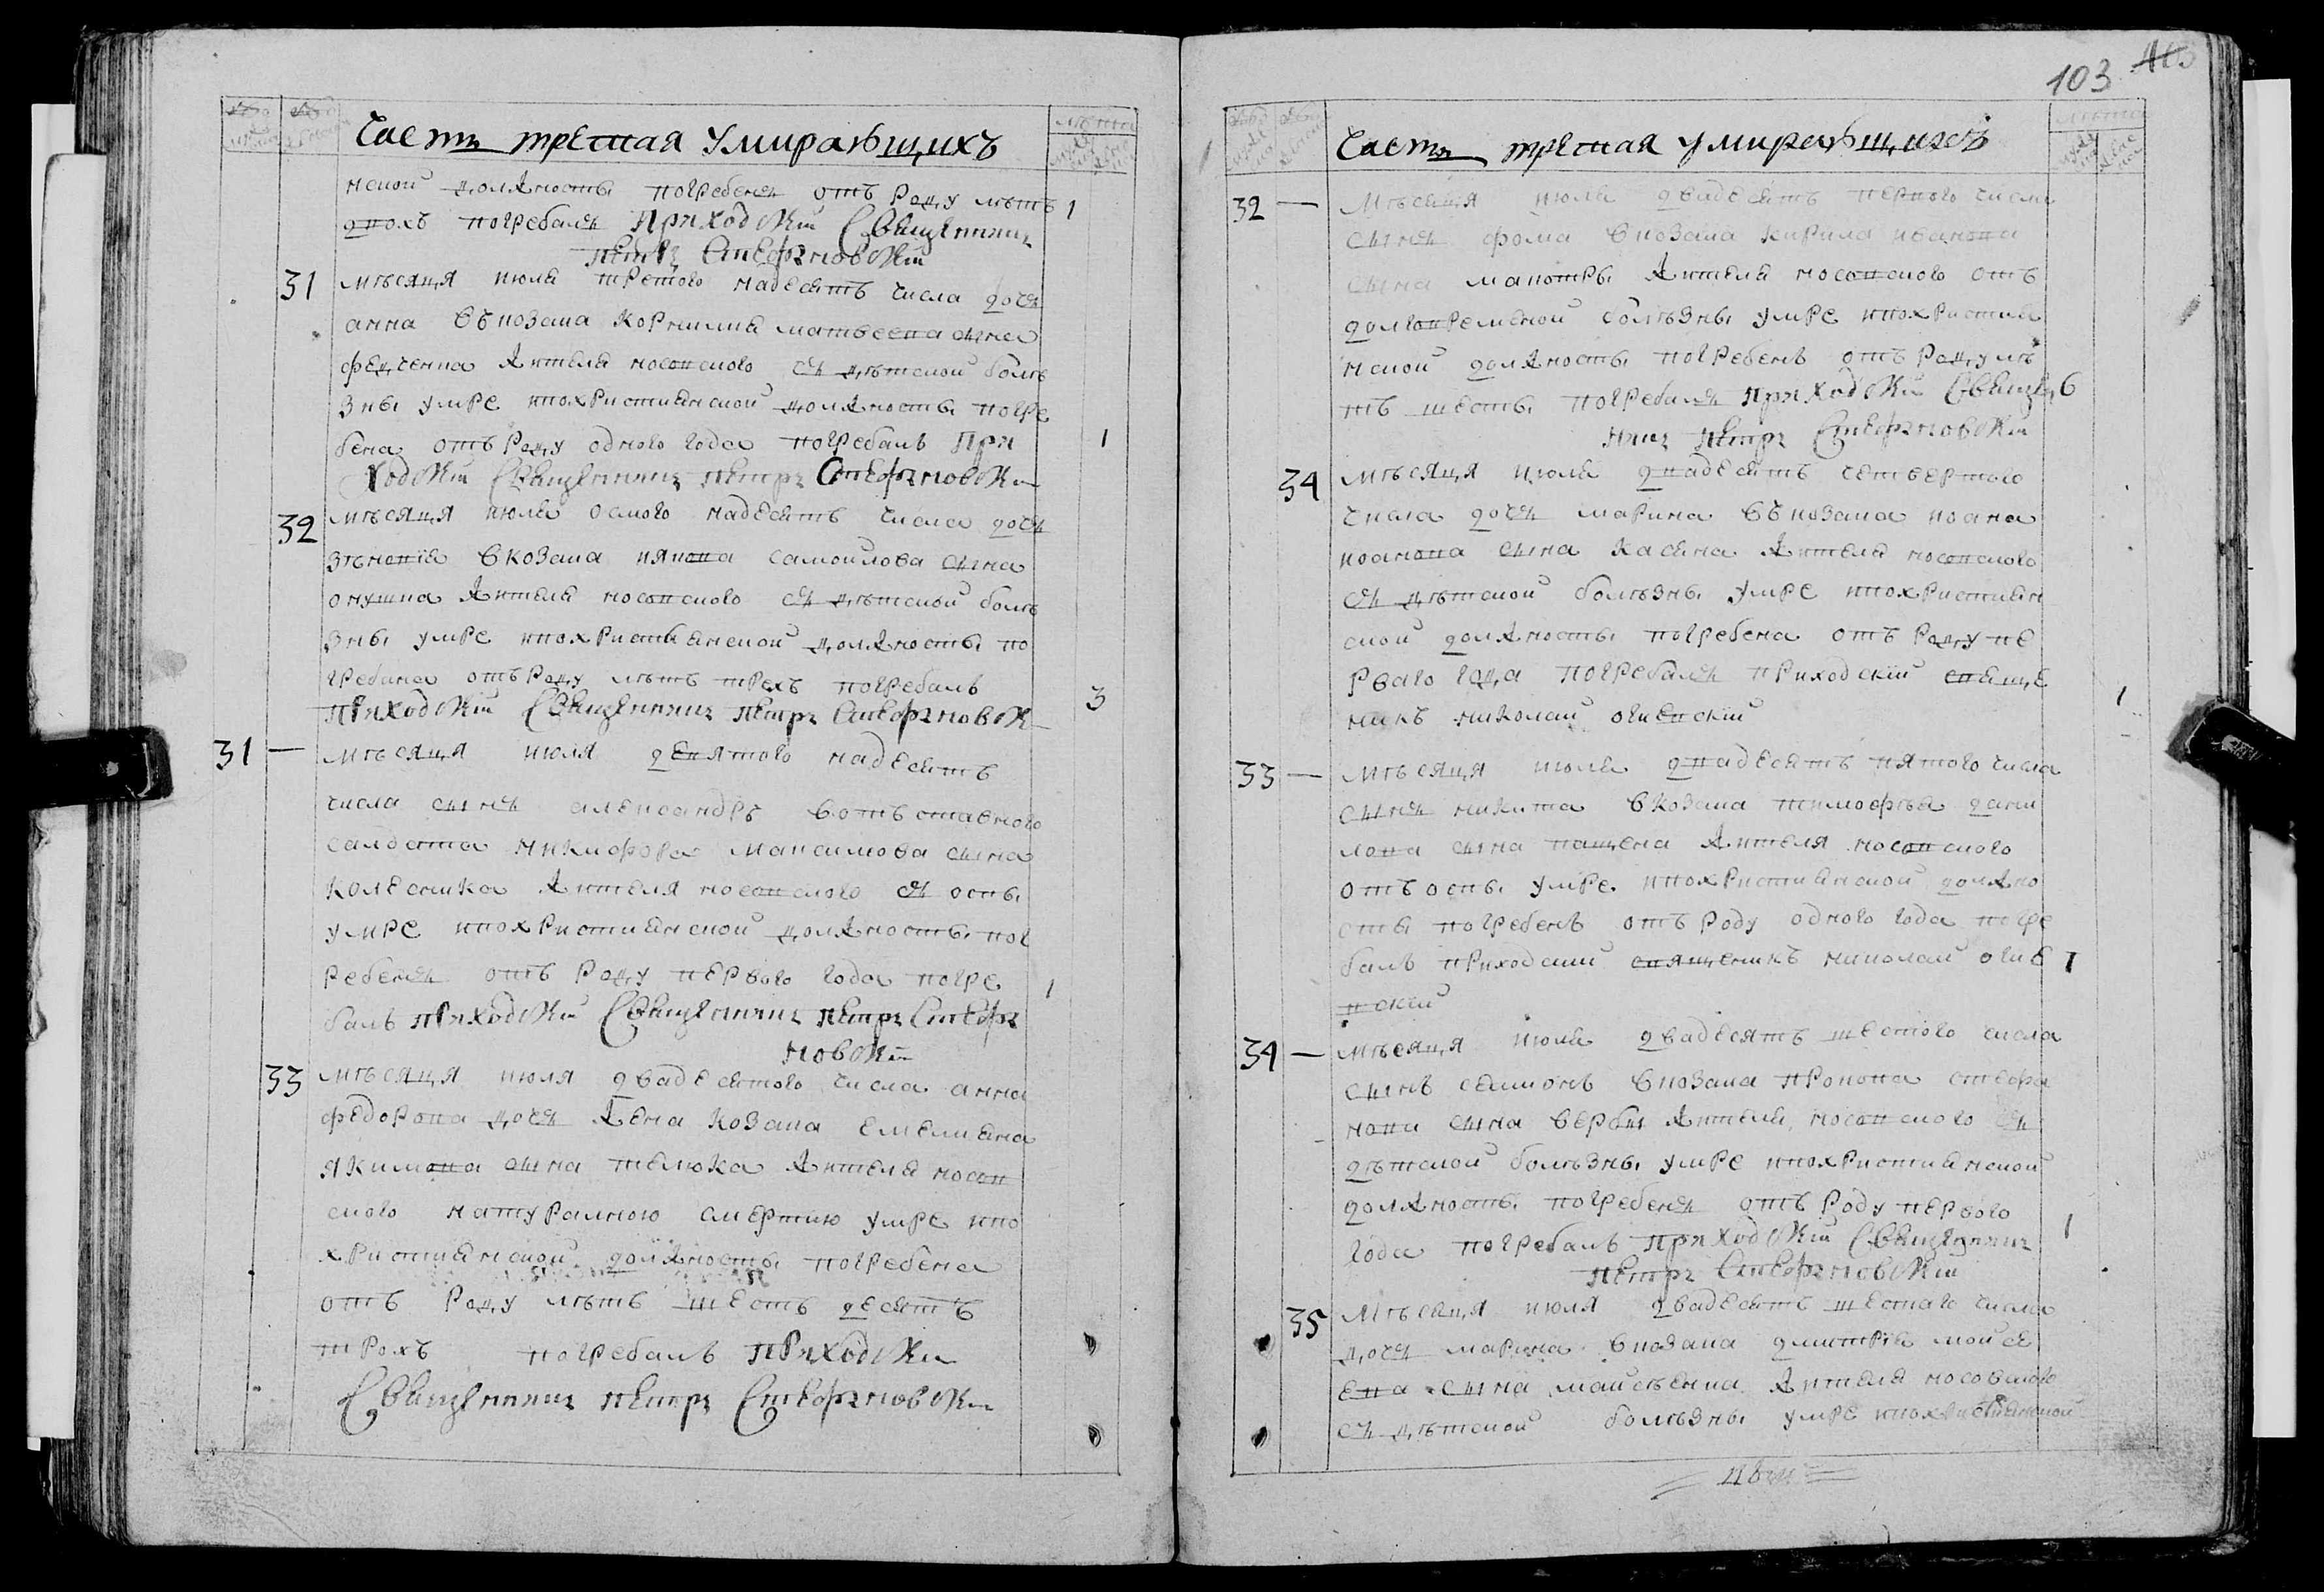 Часть третая умиравщихъ
лѣта
нской должносты погребенъ отъ роду лѣтъ 1
двохъ погребалъ Приходскій Священникъ
Петръ Стефановскій
31 мѣсяця июля третого надесять числа дочъ
анна въ козака корнилия матвеева сина
феценка жителя носовского съ дѣтской болѣ
зны умре ипохристиянской должносты погре
бена отъ роду одного года погребалъ При 1
ходскій Священникъ Петръ Стефановскій
32 мѣсяця июля осмого надесять числа дочъ
зѣновія в козака якова самоилова сина
онушка жителя носовского съ дѣтской болѣ
зны умре ипохристиянской должносты по
гребана отъ роду лѣтъ трехъ погребалъ 3
Приходскій Священникъ Петръ Стефановскій
31 — мѣсяця июля девятого надесять
числа синъ александръ в отъ ставного
салдата никифора максимова сина
колесника жителя носовского съ оспы
умре ипохристиянской должносты пог
ребенъ отъ роду первого года погре 1
балъ Приходскій Священникъ Петръ Стефа
новскій
33 мѣсяця июля двадесятого числа анна
федорова дочъ жена козака емелияна
якимова сина телюка жителя носов
ского натуралною смертию умре ипо
християнской должносты погребена
отъ роду лѣтъ шесть десятъ
трохъ погребалъ Приходскій
Священникъ Петръ Стефановскій
103
Часть третая умиравщихъ
лѣта
32 — Мѣсяця июля двадесять первого числа
синъ фома в козака кирила иванова
сина жителя носовского отъ
долговременой болѣзны умре ипохристия
нской должносты погребенъ отъ роду лѣ
тъ шесты погребалъ Приходскій Священ 6
никъ Петръ Стефановскій
34 мѣсяця июля двадесять четвертого
числа дочъ марина въ козака иоана
иоанова сина касяна жителя носовского
съ дѣтской болѣзны умре ипохристиян
ской должносты погребена отъ роду пе
рваго года погребалъ приходскій свяще 1
никъ николай огиевскій
33 — мѣсяця июля двадесять пятого числа
синъ никита в козака тимофѣя дани
лова сина пацена жителя носовского
отъ оспы умре ипохристиянской должно
сты погребенъ отъ роду одного года погре
балъ приходский священикъ николай огие 1
вский
34 — мѣсяця июля двадесять шестого числа
синъ семионъ в козака прокопа стефа
нова сина вербы жителя носовского съ
дѣтской болѣзны умре ипохристиянской
должносты погребенъ отъ роду первого 1
года погребалъ Приходскій Священникъ
Петръ Стефановскій
35 Мѣсяця июля двадесять шестаго числа
дочъ марина в козака дмитрія мойсе
ева сина мойсѣенка жителя носовского
съ дѣтской болѣзны умре ипохристиянской